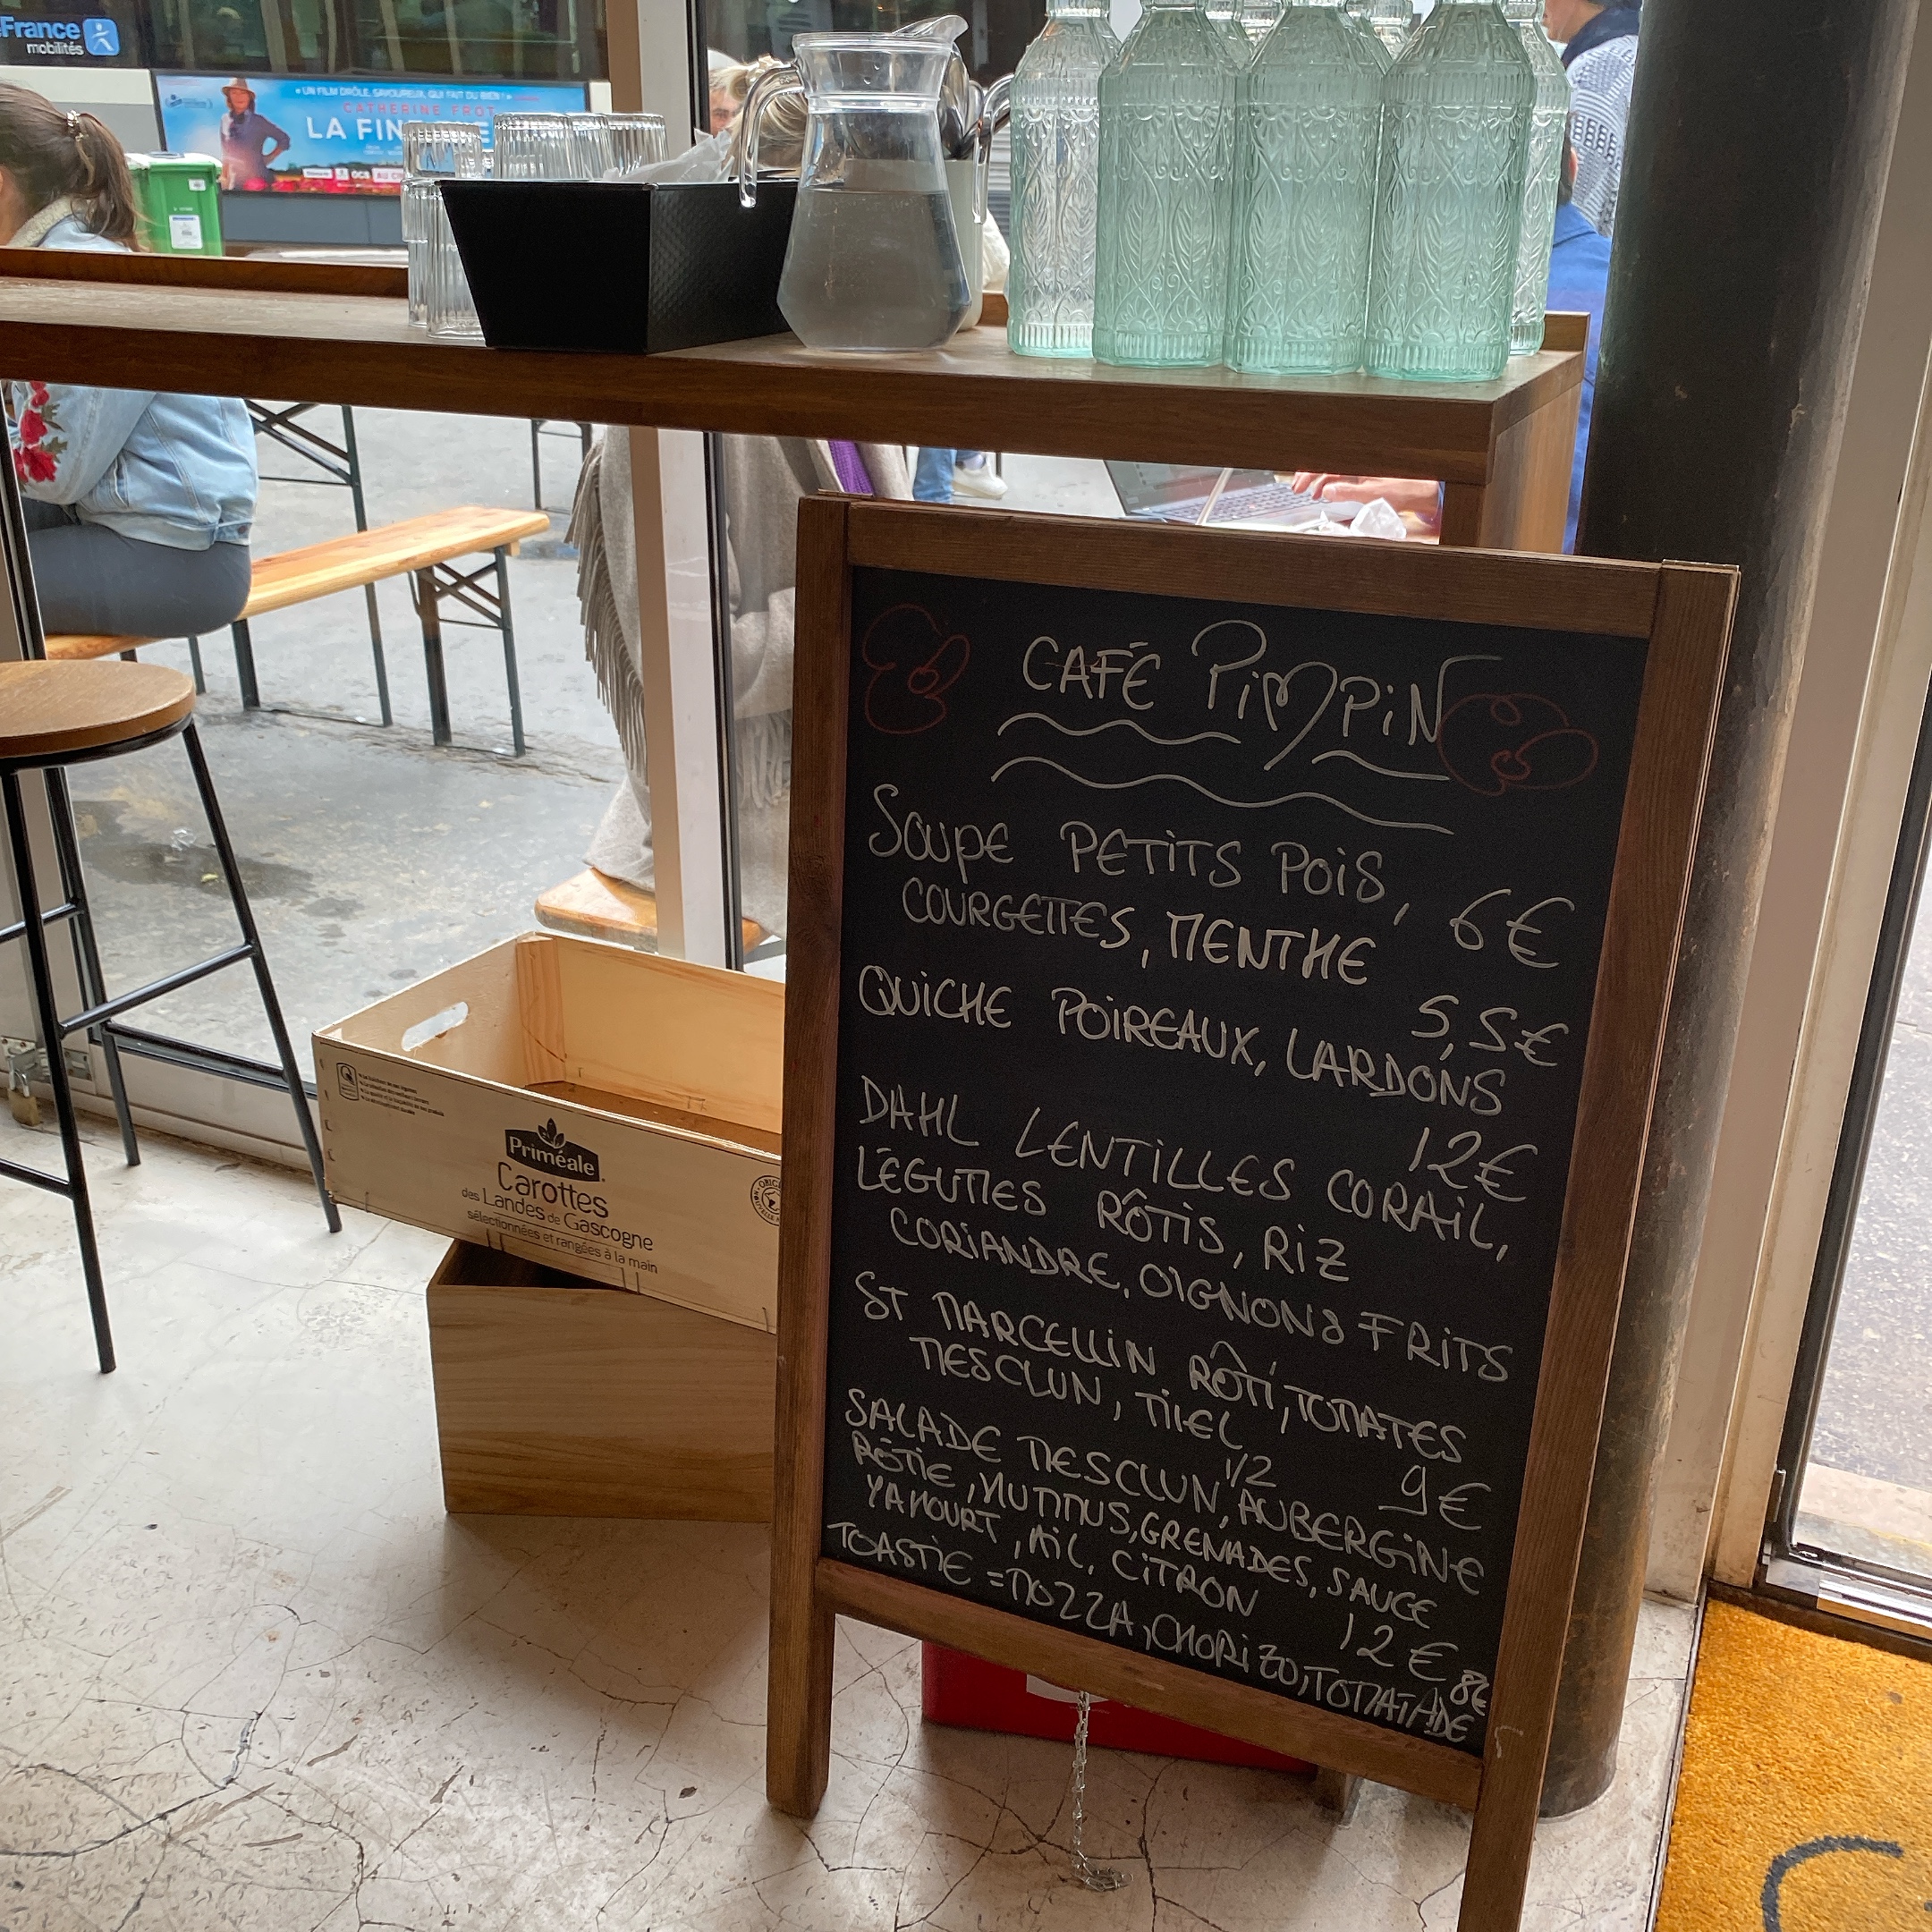 eFrance
mobilités
« UN FILM DRÔLE, SAVOUREUX, QUI FAIT DU BIEN ! »
CATHERINE FROT
LA FIN
OCS
CAFÉ PIMPIN
SOUPE PETITS POIS,
COURGETTES, MENTHE 6€
QUICHE POIREAUX, LARDONS 5,5€
DAHL LENTILLES CORAIL, 12€
LÉGUMES RÔTIS, RIZ
CORIANDRE, OIGNONS FRITS
ST MARCELLIN RÔTI, TOMATES
MESCLUN, MIEL 9€
SALADE MESCLUN, 1/2 AUBERGINE
RÔTIE, HUMMUS, GRENADES, SAUCE
YAHOURT, AIL, CITRON 12€
TOASTIE = MOZZA, CHORIZO, TOMATADE 8€
Priméale
Carottes
des Landes de Gascogne
sélectionnées et rangées à la main